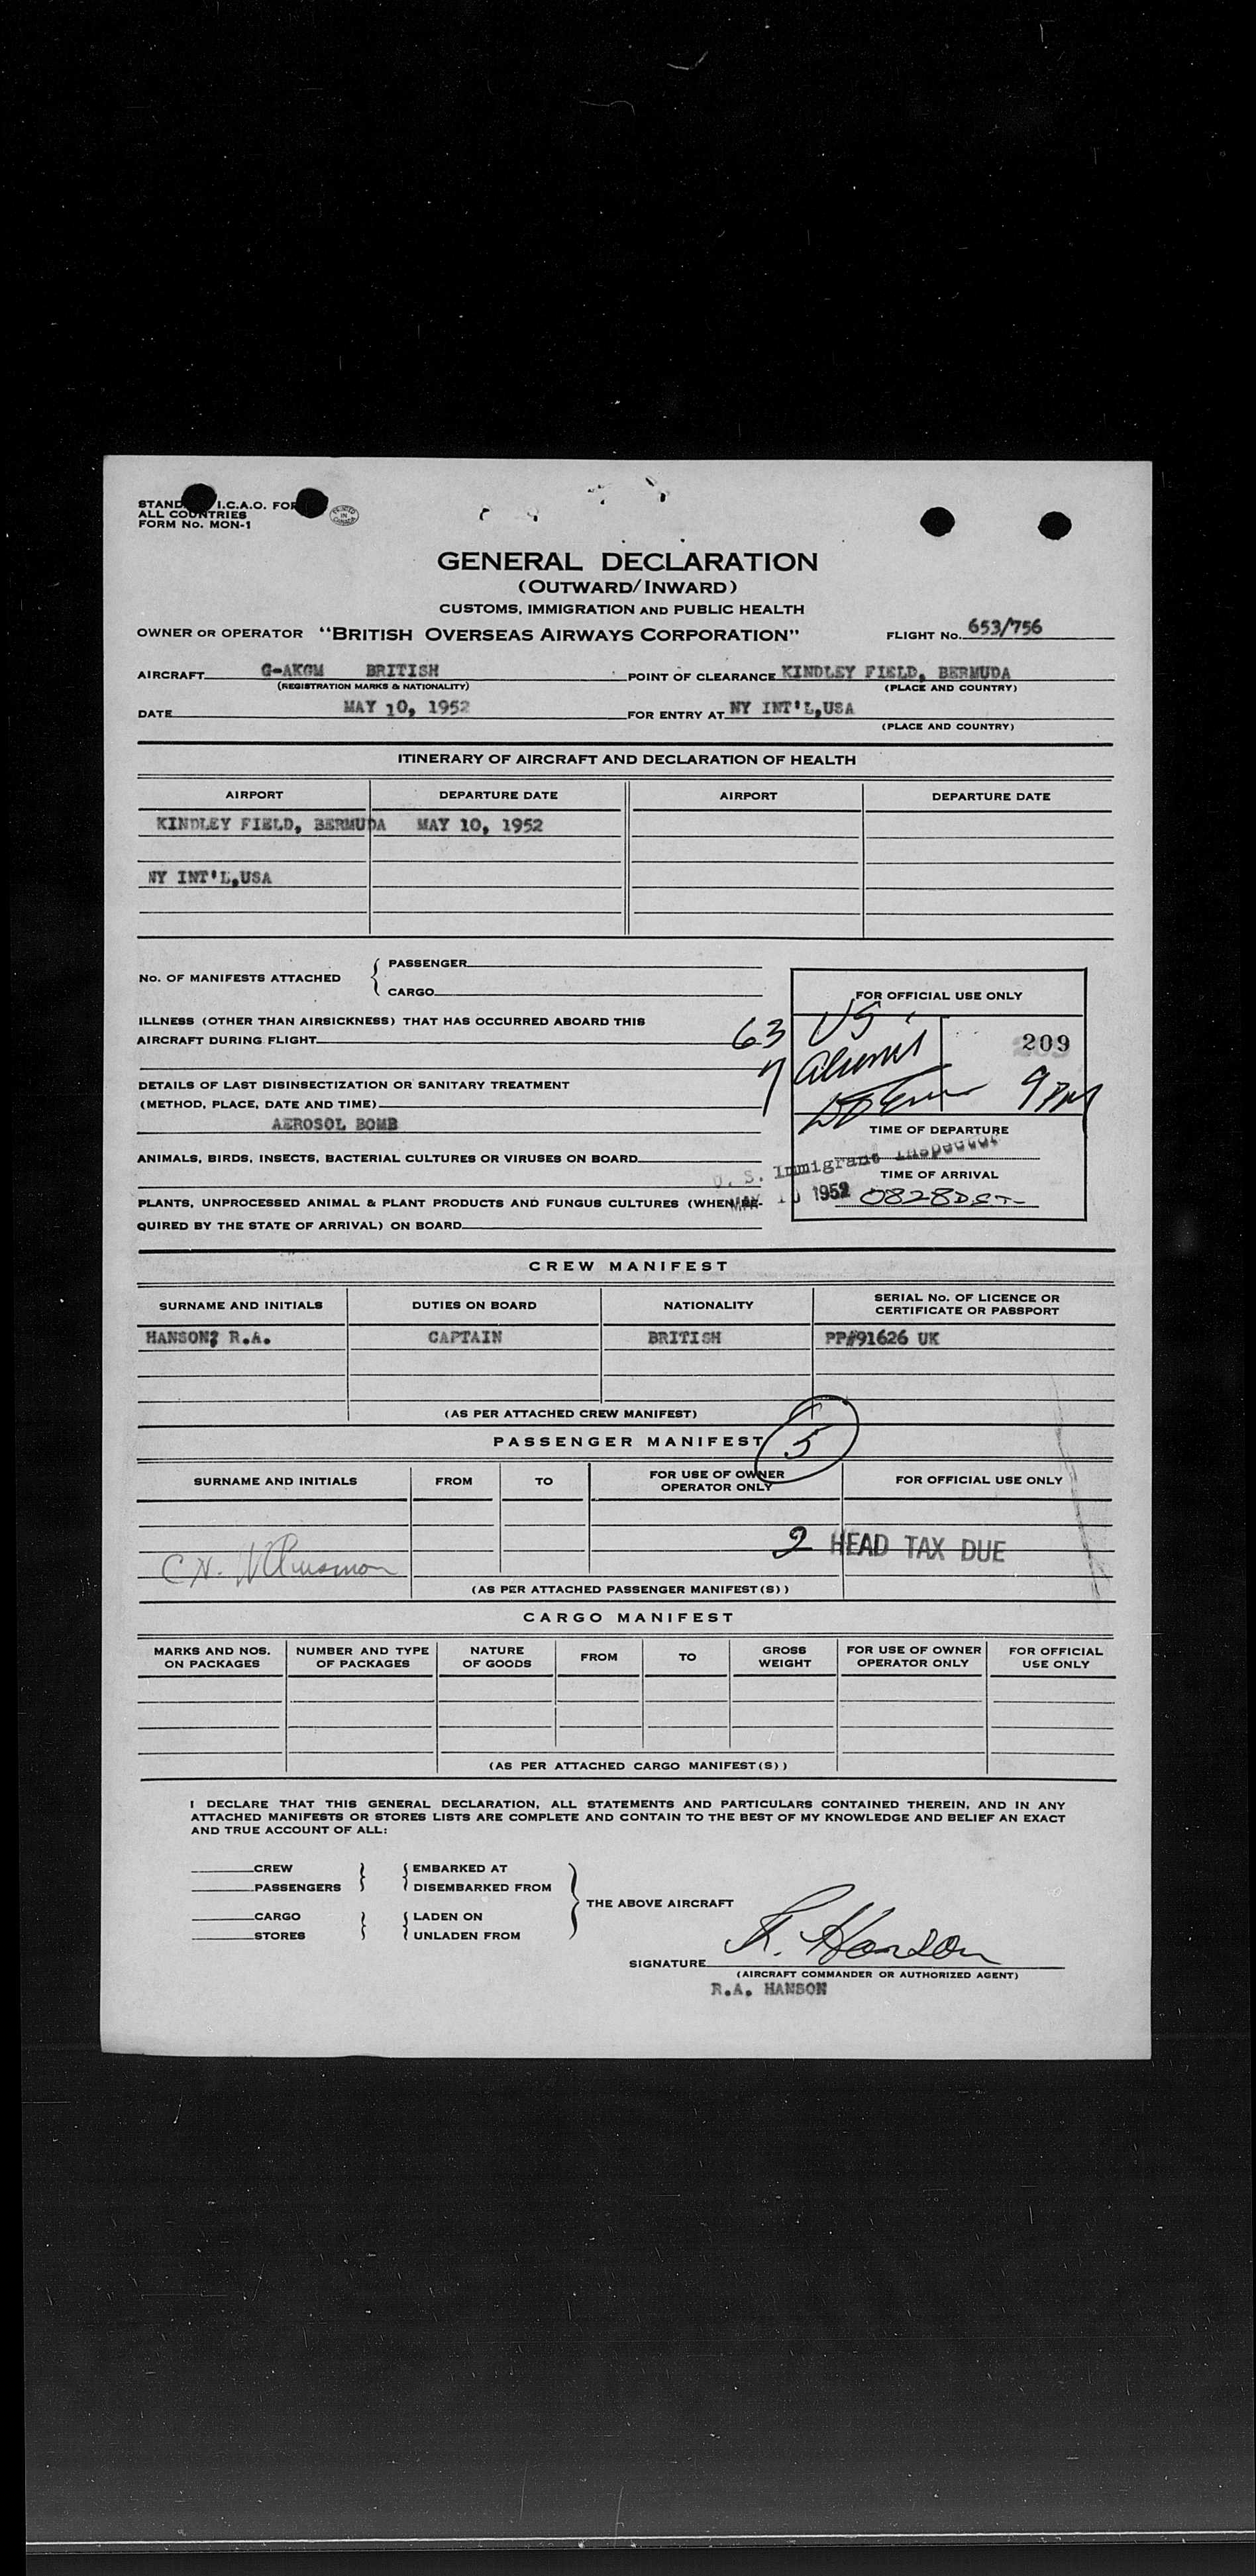 STAND I.C.A.O. FOR
ALL COUNTRIES
FORM No. MON-1
PRINTED IN CANADA
GENERAL DECLARATION
(OUTWARD/INWARD)
CUSTOMS, IMMIGRATION AND PUBLIC HEALTH
OWNER OR OPERATOR "BRITISH OVERSEAS AIRWAYS CORPORATION" FLIGHT No. 653/756
AIRCRAFT G-AKGM BRITISH POINT OF CLEARANCE KINDLEY FIELD, BERMUDA
(REGISTRATION MARKS & NATIONALITY) (PLACE AND COUNTRY)
DATE MAY 10, 1952 FOR ENTRY AT NY INT'L,USA
(PLACE AND COUNTRY)
ITINERARY OF AIRCRAFT AND DECLARATION OF HEALTH
AIRPORT DEPARTURE DATE AIRPORT DEPARTURE DATE
KINDLEY FIELD, BERMUDA MAY 10, 1952
NY INT'L,USA
No. OF MANIFESTS ATTACHED { PASSENGER
CARGO
FOR OFFICIAL USE ONLY
ILLNESS (OTHER THAN AIRSICKNESS) THAT HAS OCCURRED ABOARD THIS
AIRCRAFT DURING FLIGHT
63 US
209
7 aliens
9 PM
DETAILS OF LAST DISINSECTIZATION OR SANITARY TREATMENT
(METHOD, PLACE, DATE AND TIME)
AEROSOL BOMB
TIME OF DEPARTURE
ANIMALS, BIRDS, INSECTS, BACTERIAL CULTURES OR VIRUSES ON BOARD
U. S. Immigrant Inspector
TIME OF ARRIVAL
MAY 10 1952 0828 DST
PLANTS, UNPROCESSED ANIMAL & PLANT PRODUCTS AND FUNGUS CULTURES (WHEN RE-
QUIRED BY THE STATE OF ARRIVAL) ON BOARD
CREW MANIFEST
SURNAME AND INITIALS DUTIES ON BOARD NATIONALITY SERIAL No. OF LICENCE OR CERTIFICATE OR PASSPORT
HANSON, R.A. CAPTAIN BRITISH PP#91626 UK
(AS PER ATTACHED CREW MANIFEST)
PASSENGER MANIFEST 5
SURNAME AND INITIALS FROM TO FOR USE OF OWNER OPERATOR ONLY FOR OFFICIAL USE ONLY
2 HEAD TAX DUE
C.N. Williamson
(AS PER ATTACHED PASSENGER MANIFEST(S))
CARGO MANIFEST
MARKS AND NOS. ON PACKAGES NUMBER AND TYPE OF PACKAGES NATURE OF GOODS FROM TO GROSS WEIGHT FOR USE OF OWNER OPERATOR ONLY FOR OFFICIAL USE ONLY
(AS PER ATTACHED CARGO MANIFEST(S))
I DECLARE THAT THIS GENERAL DECLARATION, ALL STATEMENTS AND PARTICULARS CONTAINED THEREIN, AND IN ANY
ATTACHED MANIFESTS OR STORES LISTS ARE COMPLETE AND CONTAIN TO THE BEST OF MY KNOWLEDGE AND BELIEF AN EXACT
AND TRUE ACCOUNT OF ALL:
CREW } { EMBARKED AT
PASSENGERS DISEMBARKED FROM
} THE ABOVE AIRCRAFT
CARGO } { LADEN ON
STORES UNLADEN FROM
SIGNATURE R. Hanson
(AIRCRAFT COMMANDER OR AUTHORIZED AGENT)
R.A. HANSON